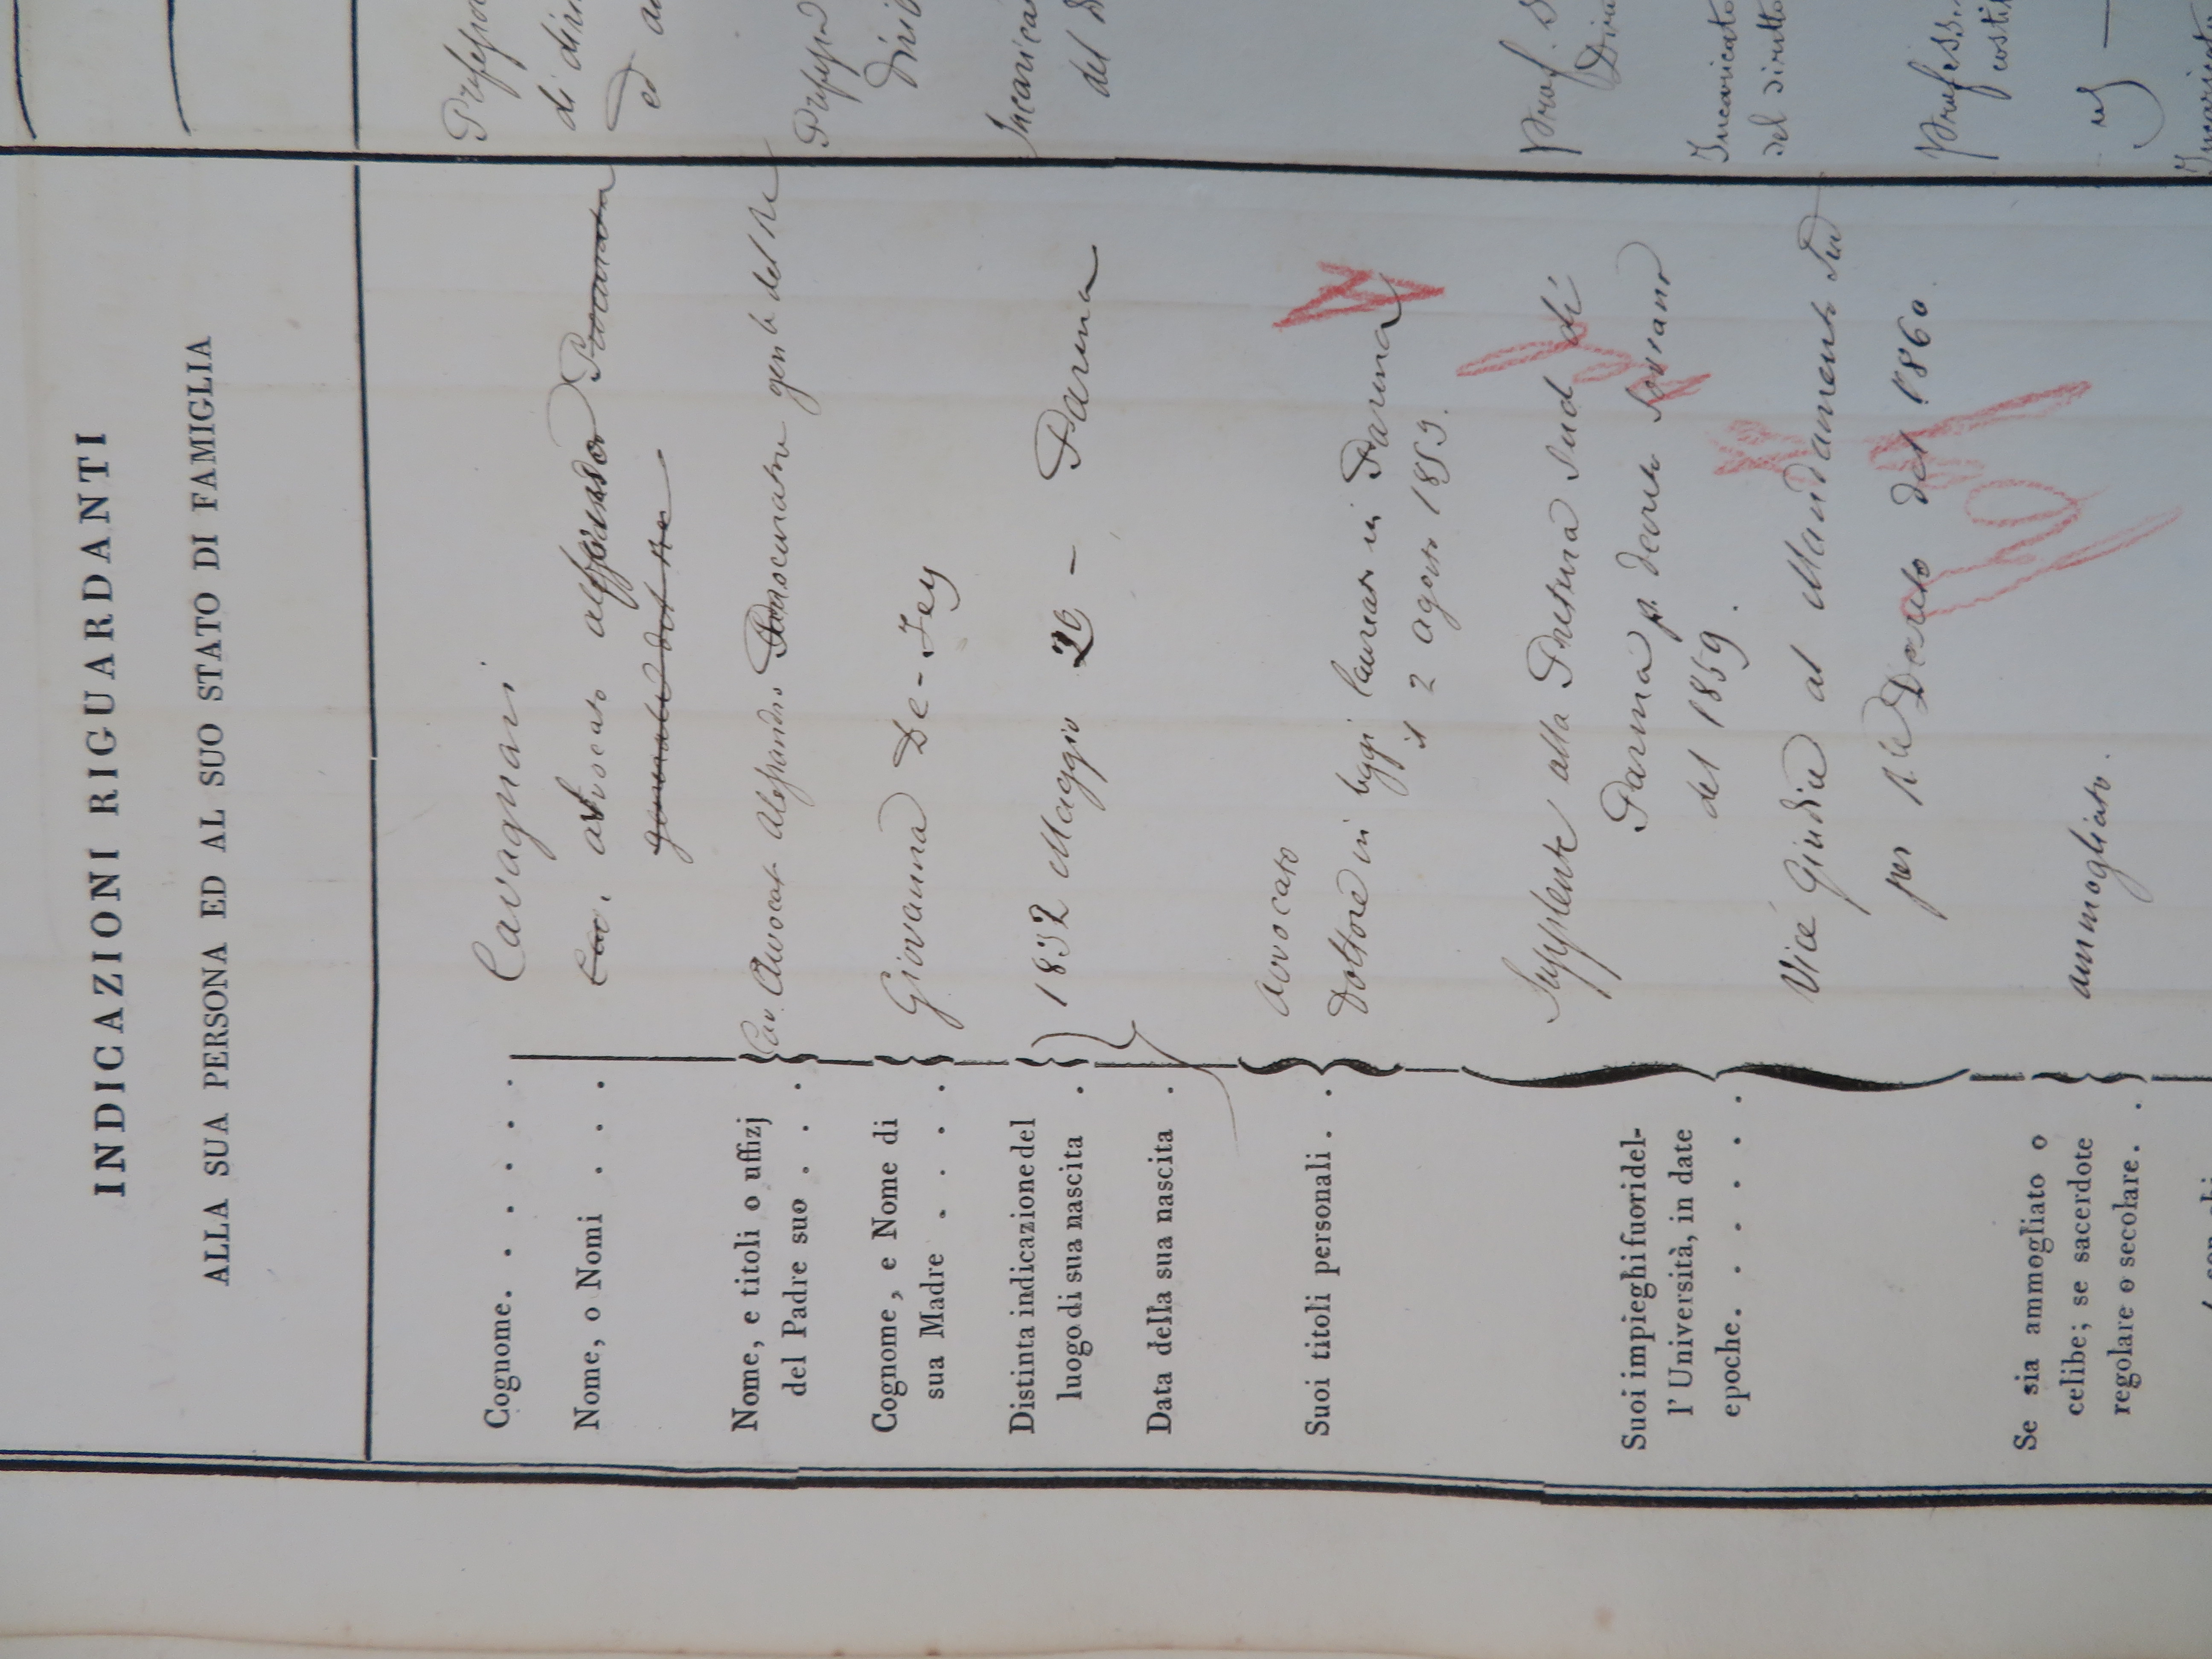 INDICAZIONI RIGUARDANTI
ALLA SUA PERSONA ED AL SUO STATO DI FAMIGLIA
Cognome. . . . . . Cavagnari
Nome, o Nomi . . . . Cav. avvocato alfonso Procurator
generale del Re
Nome, e titoli o uffizj
del Padre suo . . . Cav. Avvocat Alessandro Procuratore gen le del Re
Cognome, e Nome di
sua Madre . . . . Giovanna De-Jey
Distinta indicazione del
luogo di sua nascita . 1832 Maggio 26 - Parma
Data della sua nascita .
Suoi titoli personali . . avvocato
Dottore in leggi laureato in Parma
il 2 agosto 1853.
Suoi impieghi fuori del-
l' Università, in date
epoche. . . . . . Supplente alla Pretura Sud di
Parma p. decreto Sovrano
del 1859.
Vice Giudice al Mandamento Sud
per R. le Decreto del 1860.
Se sia ammogliato o
celibe; se sacerdote
regolare o secolare. . ammogliato.
di
ed
Incaricato
del
Prof.
Incaricato
del diritto